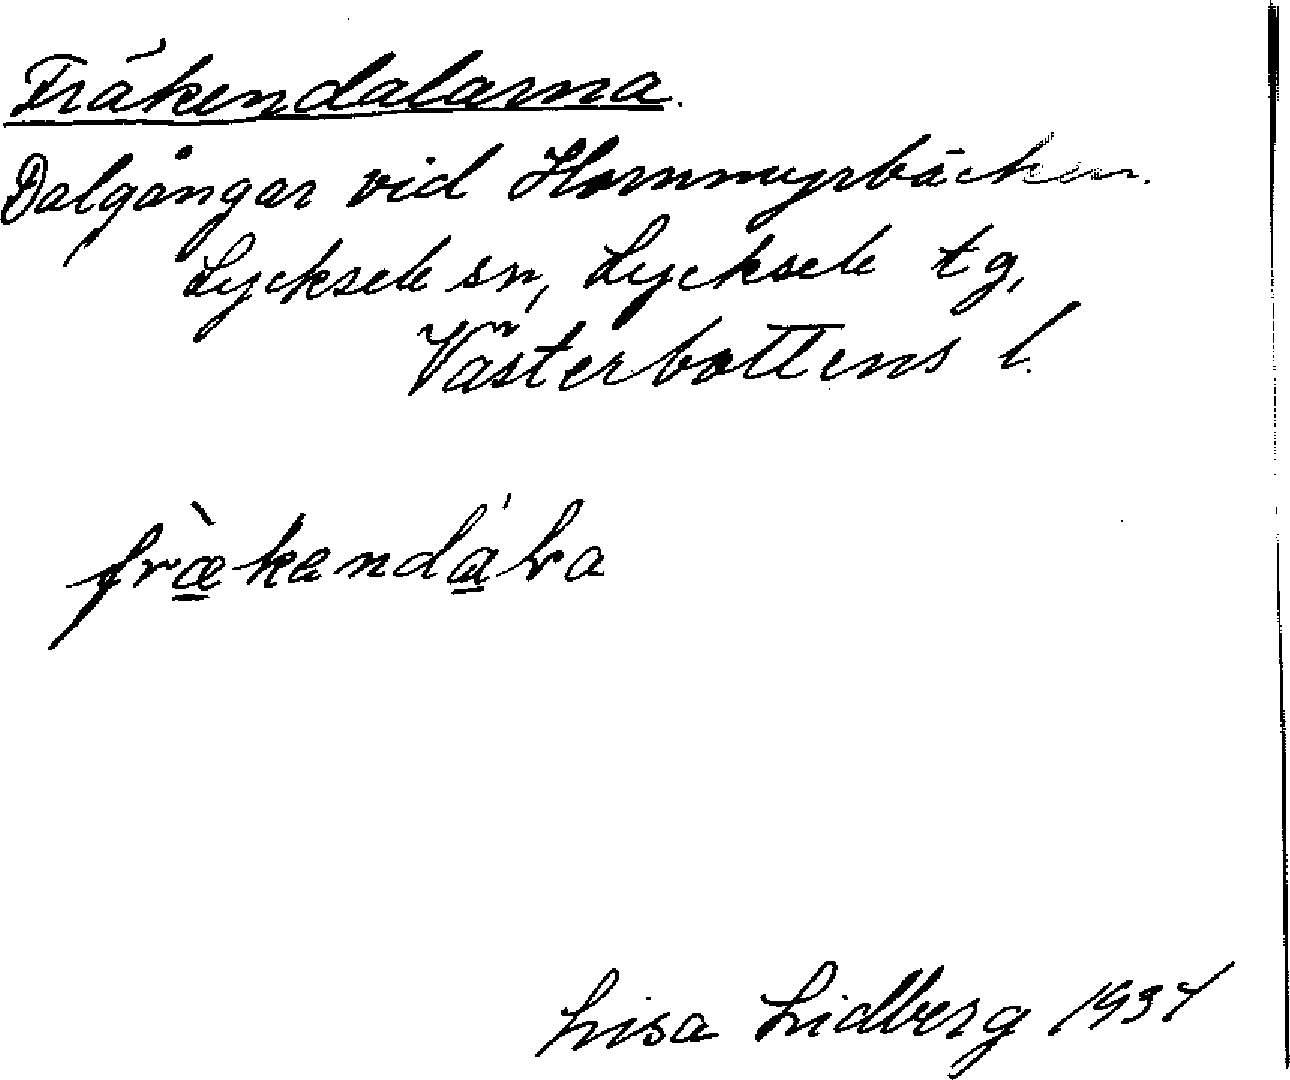 Fräkendalarna.
Dalgångar vid Hornmyrbäcken.
Lycksele sn, Lycksele tg,
Västerbottens l.
Lisa Lidberg 1937